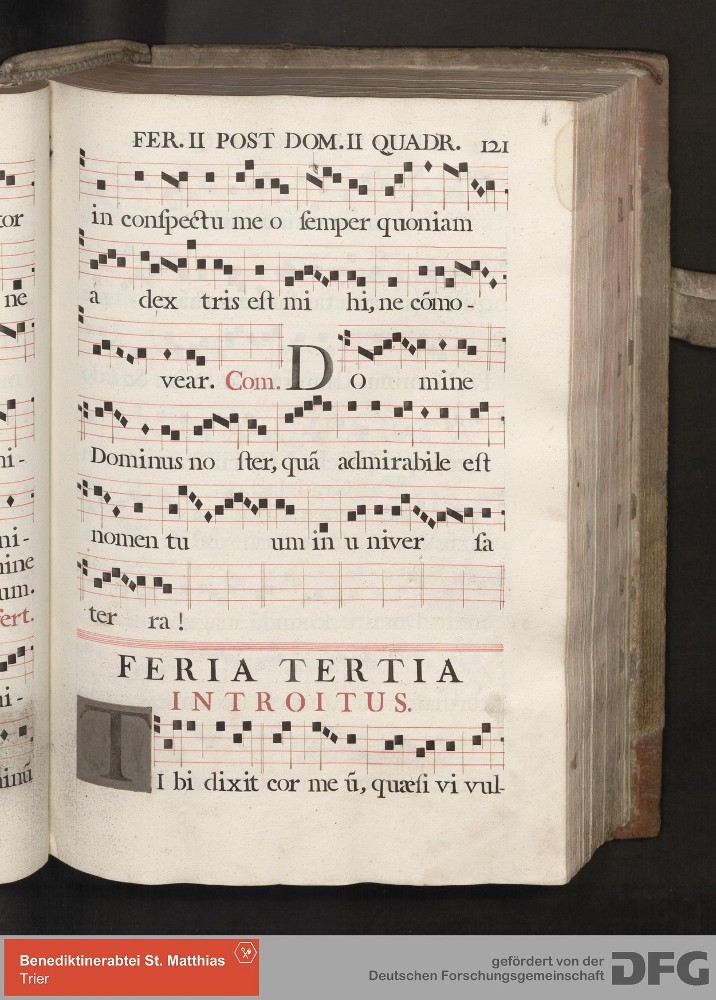 FER. II POST DOM. II QUADR. 121
in conſpectu me o ſemper quoniam
a dex tris eſt mi hi, ne cōmo-
vear. Com. DO mine
Dominus no ſter, quā admirabile eſt
nomen tu um in u niver ſa
ter ra!
FERIA TERTIA
INTROITUS.
TI bi dixit cor me ū, quæſi vi vul-
tor
ne
ni-
ni-
nine
um.
fert.
ni-
minū
Benediktinerabtei St. Matthias
Trier
gefördert von der
Deutschen Forschungsgemeinschaft
DFG